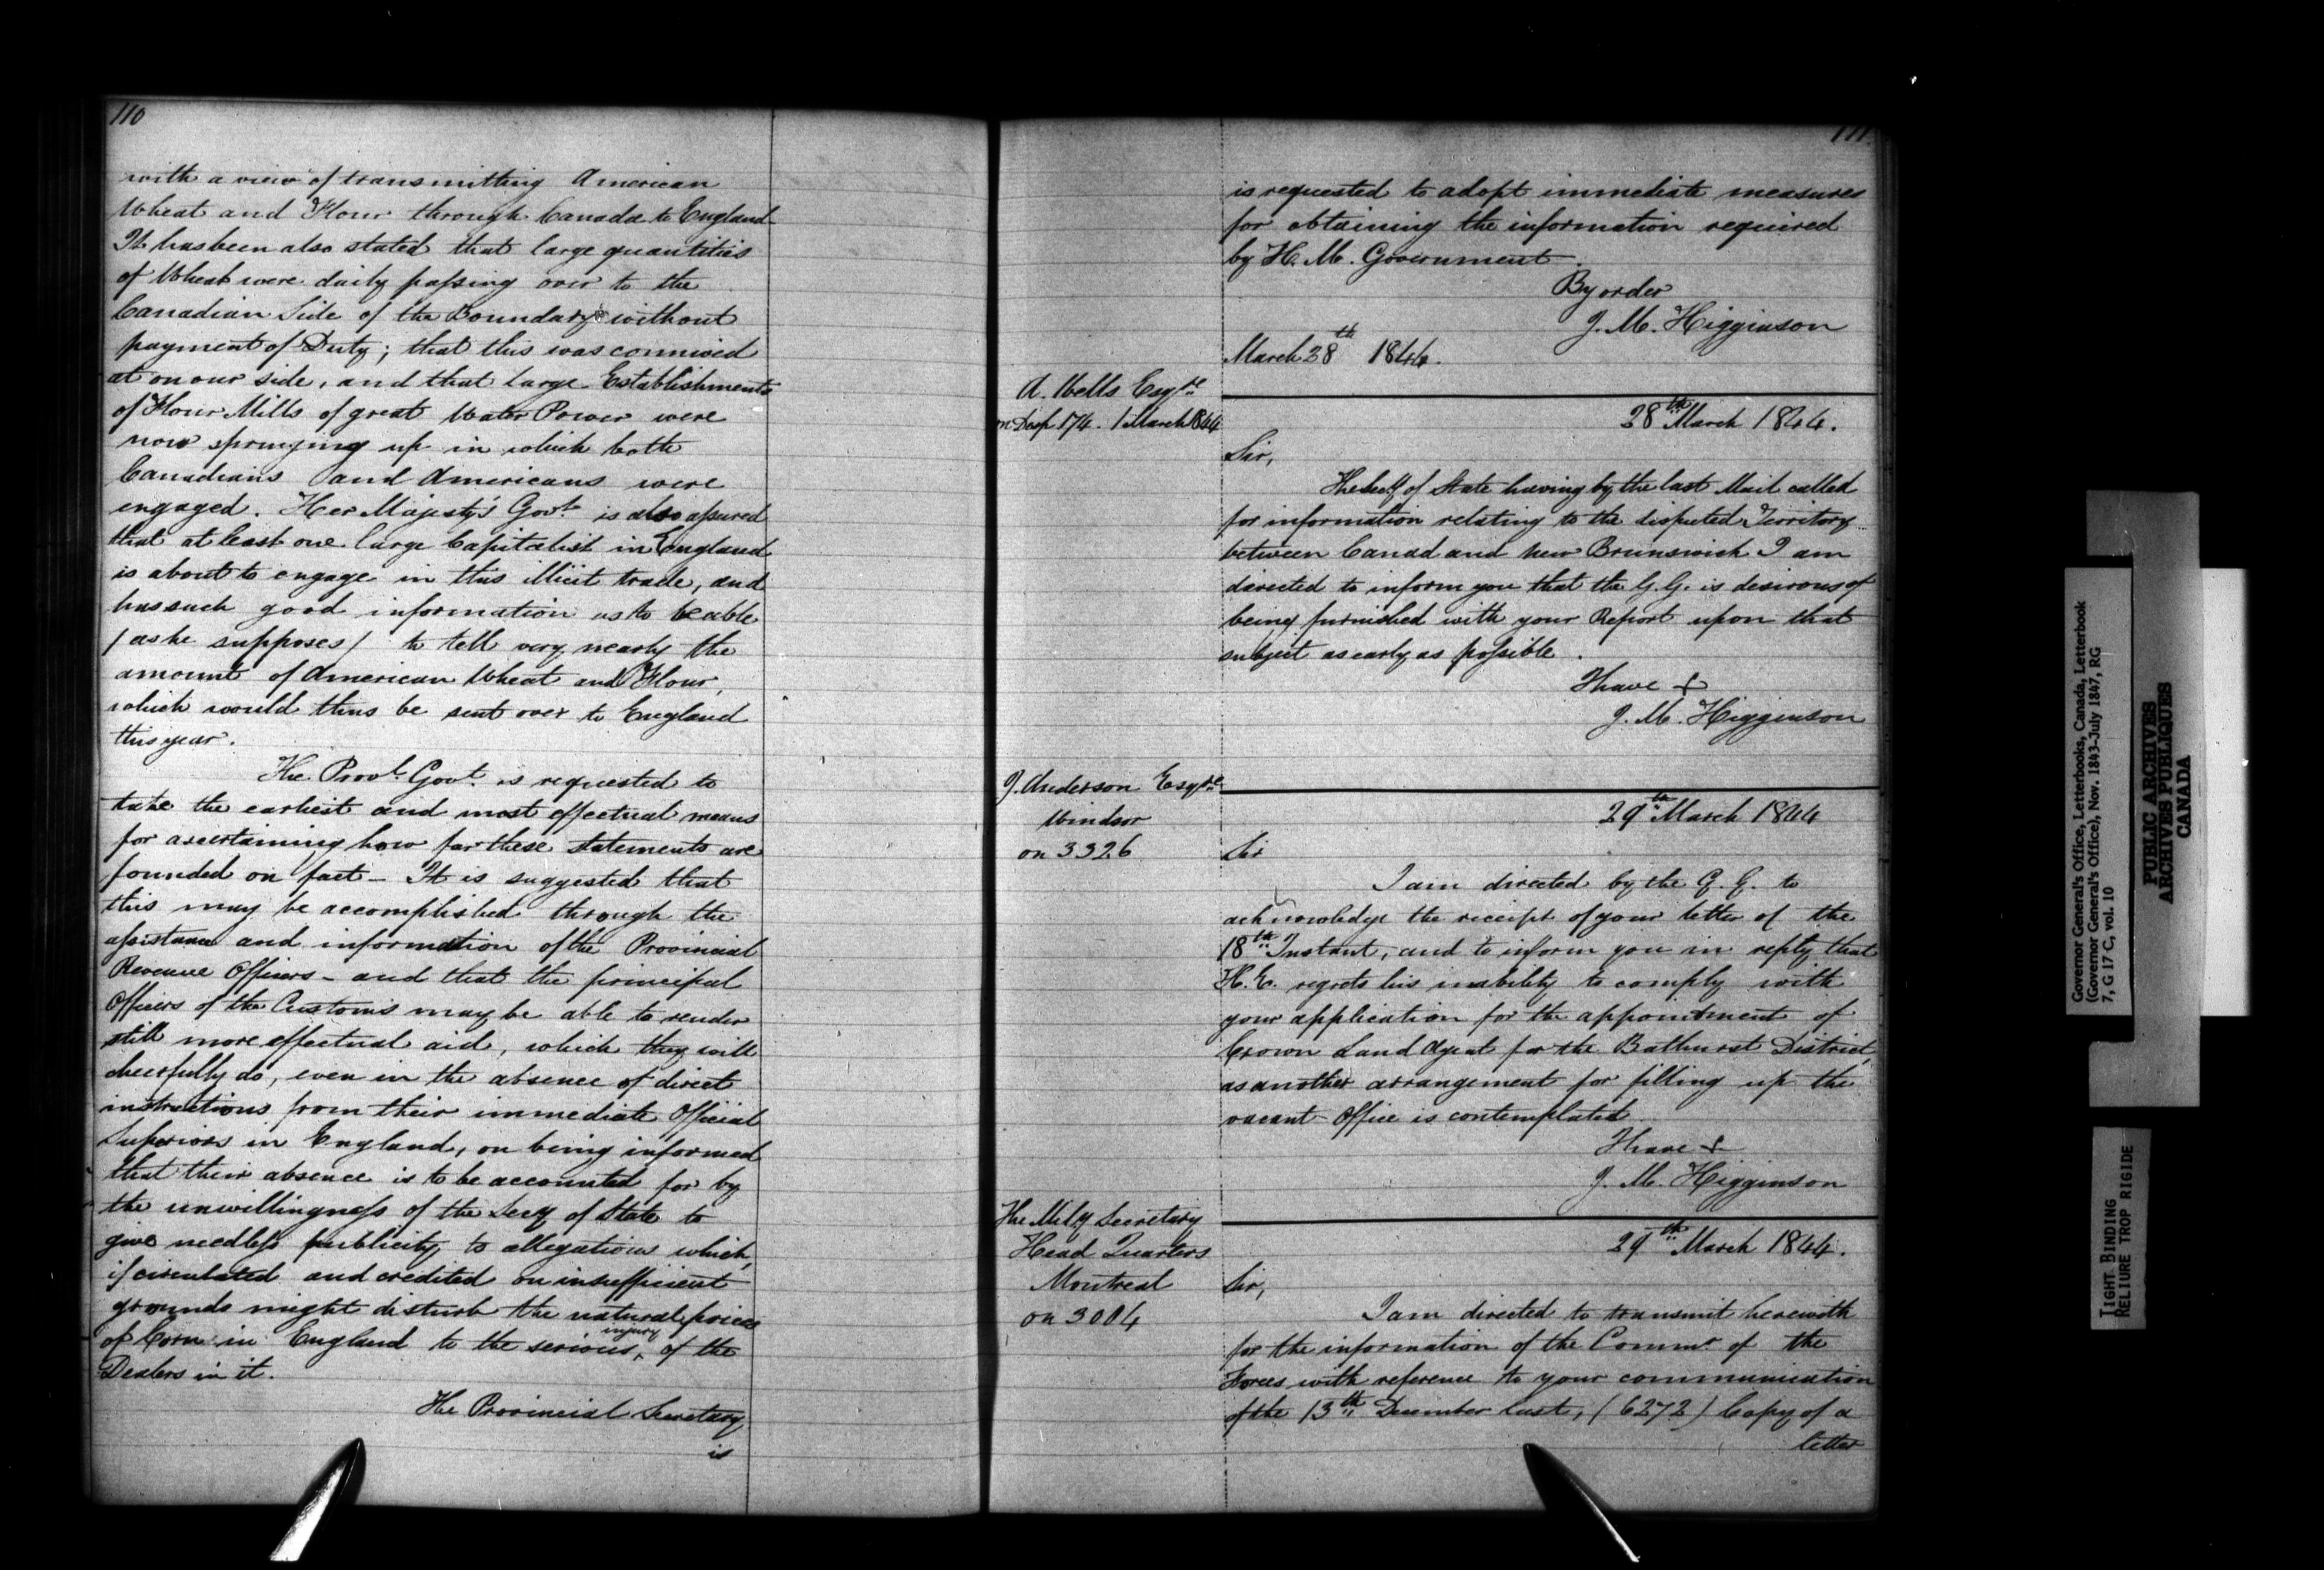 110
with a view of transmitting American
Wheat and Flour through Canada to England
It has been also stated that large quantities
of Wheat were daily passing over to the
Canadian Side of the Boundary without
payment of Duty; that this was connived
at on our side, and that large Establishments
of Flour Mills of great Water Power were
now springing up in which both
Canadians and Americans were
engaged. Her Majesty's Govt. is also assured
that at least one large Capitalist in England
is about to engage in this illicit trade, and
has such good information as to be able
/ as he supposes / to tell very nearly the
amount of American Wheat and Flour,
which would thus be sent over to England
this year.
The Provl. Govt. is requested to
take the earliest and most effectual means
for ascertaining how far these statements are
founded on fact - It is suggested that
this may be accomplished through the
assistance and information of the Provincial
Revenue Officers - and that the principal
Officers of the Customs may be able to render
still more effectual aid, which they will
cheerfully do, even in the absence of direct
instructions from their immediate Official
Superiors in England, on being informed
that their absence is to be accounted for by
the unwillingness of the Secy of State to
give needless publicity to allegations which,
if circulated and credited on insufficient
grounds might disturb the natural prices
of Corn in England to the serious injury of the
Dealers in it.
The Provincial Secretary
is
111
is requested to adopt immediate measures
for obtaining the information required
by H. M. Government.
By order
J. M. Higginson
March 28th 1844.
A. Wells Esqre
on Desp 174. 1 March 1844
28th March 1844.
Sir,
The Secy of State having by the last Mail called
for information relating to the disputed Territory
between Canad and New Brunswick I am
directed to inform you that the G.G. is desirous of
being furnished with your Report upon that
subject as early as possible.
I have &
J. M. Higginson
J. Anderson Esqre
Windsor
on 3326
29th March 1844
Sir
I am directed by the G. G. to
acknowledge the receipt of your letter of the
18th Instant, and to inform you in reply that
H. E. regrets his inability to comply with
your application for the appointment of
Crown Land Agent for the Bathurst District,
as another arrangement for filling up the
vacant Office is contemplated
I have &
J. M. Higginson
The Mily Secretary
Head Quarters
Montreal
on 3004
29th March 1844.
Sir,
I am directed to transmit herewith
for the information of the Commr of the
Forces with reference to your communication
of the 13th December last, (6272) Copy of a
letter
Governor General's Office, Letterbooks, Canada, Letterbook
(Governor General's Office), Nov. 1843-July 1847, RG
7, G 17 C, vol. 10
PUBLIC ARCHIVES
ARCHIVES PUBLIQUES
CANADA
TIGHT BINDING
RELIURE TROP RIGIDE